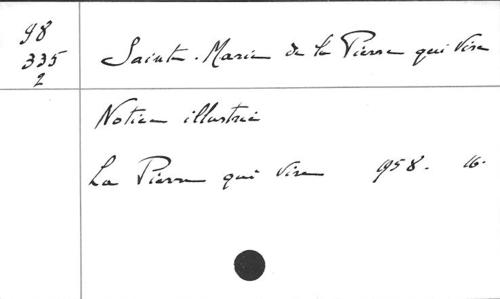 98
335
2
Sainte-Marie de la Pierre qui Vire
Notice illustrée
La Pierre qui Vire 1958. 16.